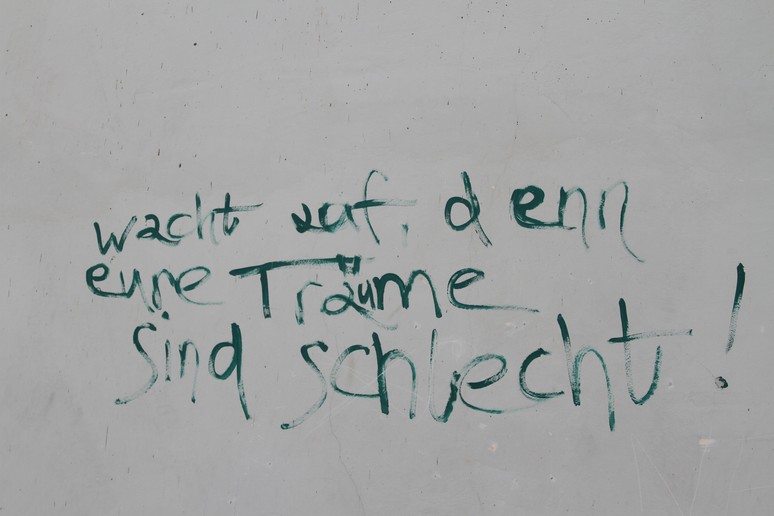 wacht auf, denn
eure Träume
sind schlecht!